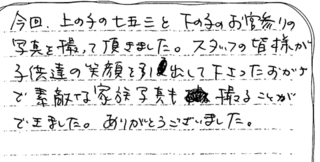 今回、上の子の七五三と下の子のお宮参りの
写真を撮って頂きました。スタッフの皆様が
子供達の笑顔を引出して下さったおかげ
で素敵な家族写真も撮ることが
できました。ありがとうございました。